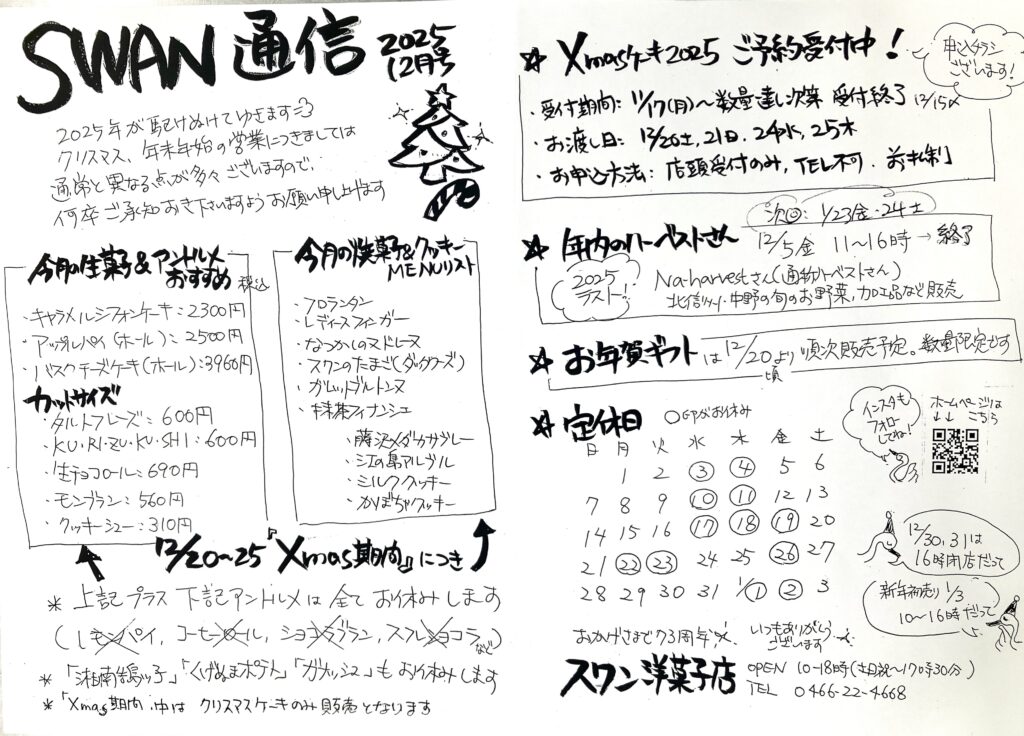 SWAN 通信 2025 12月号
2025年が駆けぬけてゆきます
クリスマス、年末年始の営業につきましては
通常と異なる点が多々ございますので、
何卒ご承知おき下さいますようお願い申し上げます
今月の生菓子&アントルメ
おすすめ 税込
・キャラメルシフォンケーキ:2300円
・アップルパイ(ホール):2500円
・バスクチーズケーキ(ホール):3960円
カットサイズ
・タルトフレーズ:600円
・KU・RI・ZU・KU・SHI:600円
・生チョコロール:690円
・モンブラン:560円
・クッキーシュー:310円
今月の焼菓子&クッキー
MENUリスト
・フロランタン
・レディースフィンガー
・なつかしのマドレーヌ
・スワンのたまご(ダックワーズ)
・ガレットブルトンヌ
・抹茶フィナンシェ
・藤沢メダカサブレー
・江の島アルブル
・ミルククッキー
・かぼちゃクッキー
12/20~25『Xmas期間』につき
* 上記プラス 下記アントルメは全てお休みします
(レモンパイ, コーヒーロール, ショコラブラン, スフレショコラなど)
*「湘南鵠っ子」「くげぬまポテト」「ガトーッシュ」もお休みします
*「Xmas期間」中は クリスマスケーキのみ販売となります
☆ Xmasケーキ2025 ご予約受付中!
申込チラシ
ございます!
・受付期間:11/17(月)~数量達し次第 受付終了 12/15〆
・お渡し日:12/20土, 21日, 24水, 25木
・お申込方法:店頭受付のみ, TEL不可. お1人1制
次回:1/23金・24土
☆ 年内のハーベストさん 12/5金 11~16時→終了
2025
ラスト!!
Na-harvestさん(通称ハーベストさん)
北信州・中野の旬のお野菜, 加工品など販売
☆ お年賀ギフト は12/20頃より順次販売予定。数量限定です
☆ 定休日 ○印がお休み
インスタも
フォロー
してね!
ホームページは
↓↓ こちら
日 月 火 水 木 金 土
1 2 ③ ④ 5 6
7 8 9 ⑩ ⑪ 12 13
14 15 16 ⑰ ⑱ ⑲ 20
21 ㉒ ㉓ 24 25 ㉖ 27
28 29 30 31 1/① ② 3
12/30, 31は
16時閉店だって
新年初売り 1/3
10~16時だって
おかげさまで73周年 いつもありがとう
ございます
スワン洋菓子店 OPEN 10-18時(土日祝~17時30分)
TEL 0466-22-4668